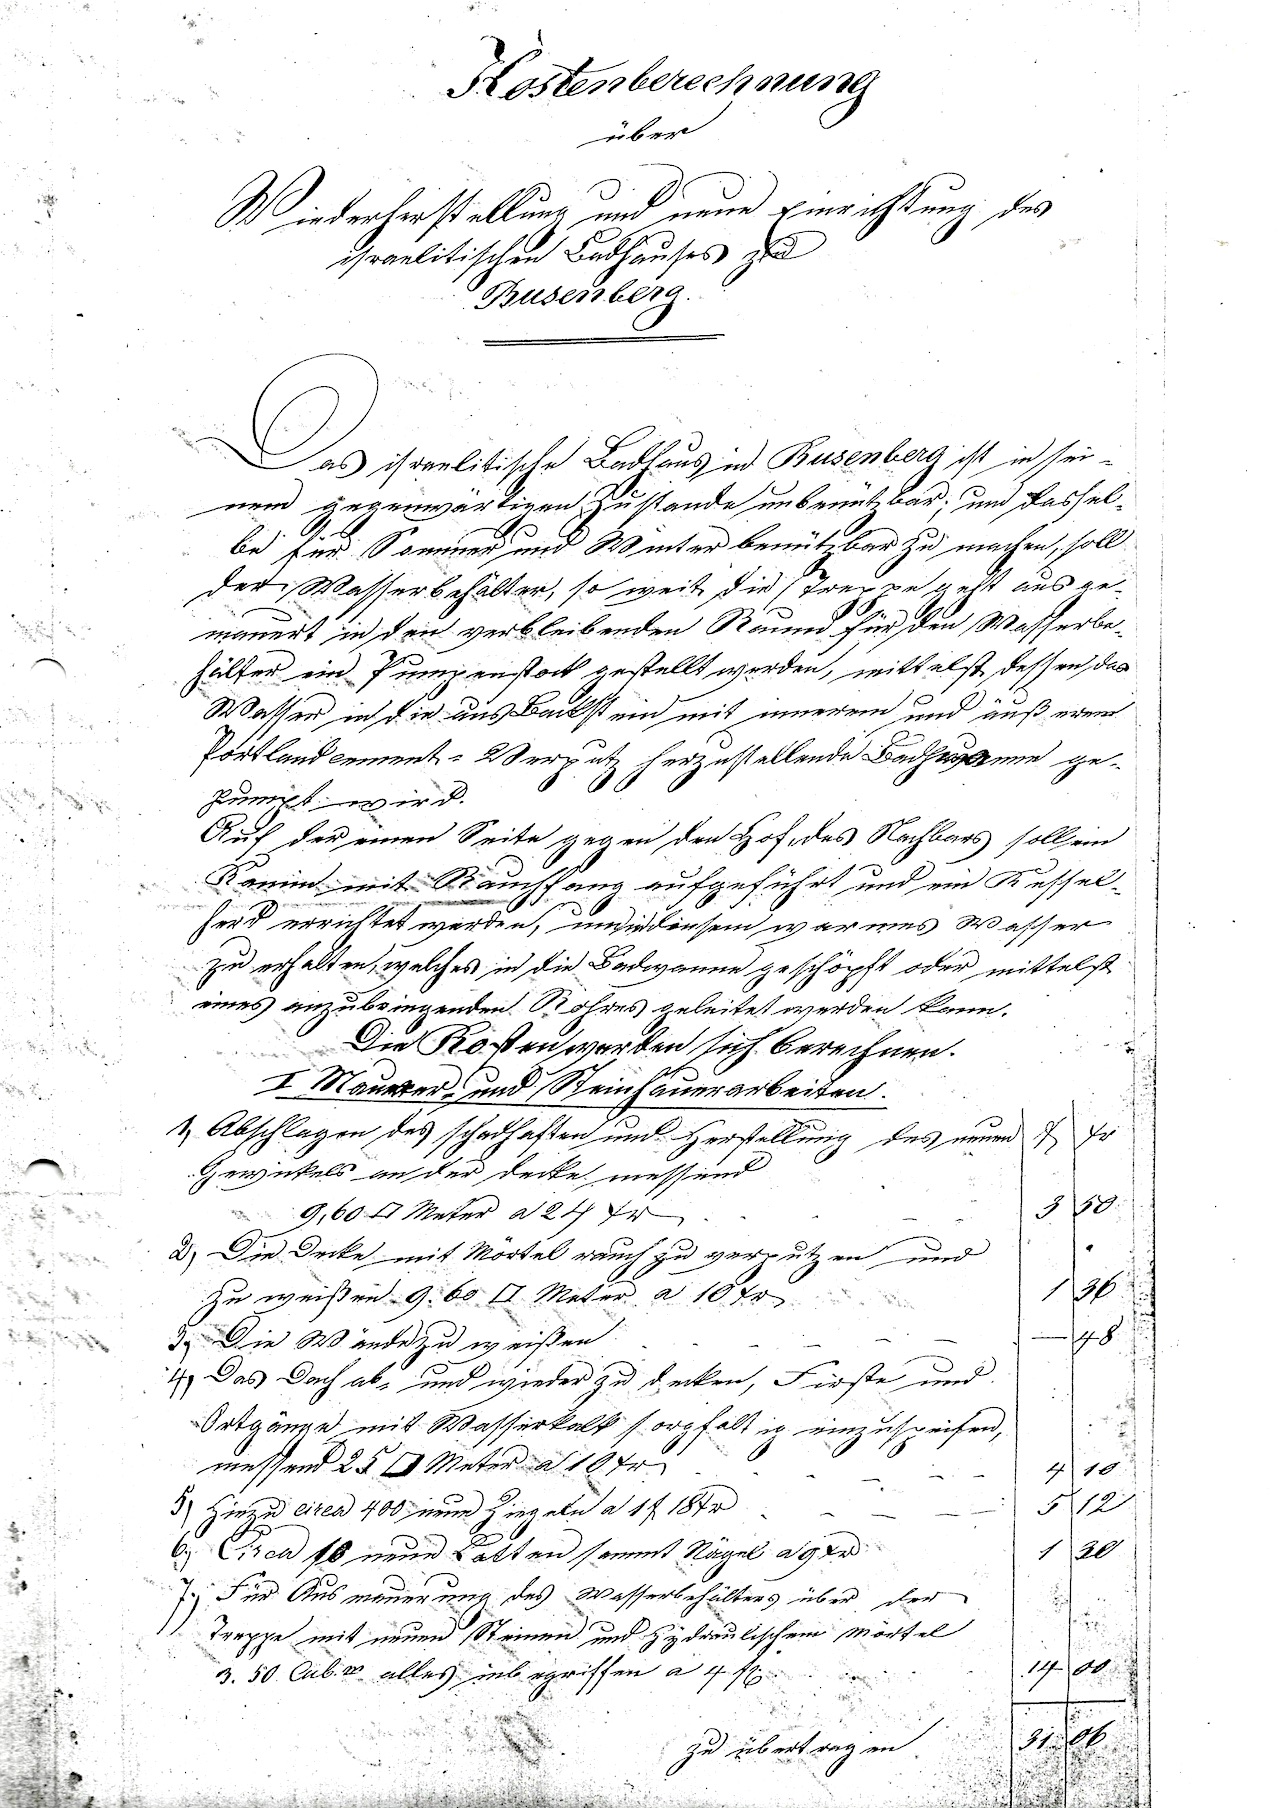 Kostenberechnung
über
Wiederherstellung und neue Einrichtung des
israelitischen Badhauses zu
Busenberg.
Das israelitische Badhaus in Busenberg ist in sei-
nem gegenwärtigen Zustande unbenützbar; um dassel-
be für Sommer und Winter benützbar zu machen, soll
der Wasserbehälter, so weit die Treppe geht ausge-
mauert in den verbleibenden Raum für den Wasserbe-
hälter ein Pumpenstock gestellt werden, mittelst dessen das
Wasser in die aus Backstein mit innerem und äußerem
Portlandcement-Verputz herzustellende Badewanne ge-
pumpt wird.
Auf der einen Seite gegen den Hof des Nachbars soll ein
Kamin mit Rauchfang aufgeführt und ein Kessel-
herd errichtet werden, um in diesem warmes Wasser
zu erhalten, welches in die Badwanne geschöpft oder mittelst
eines anzubringenden Rohres geleitet werden kann.
Die Kosten werden sich berechnen.
I Maurer- und Steinhauerarbeiten.
1, Abschlagen des schadhaften und Herstellung des neuen f xr
Gewickels an der Decke messend
9,60 □ Meter a 24 xr 3 50
2, Die Decke mit Mörtel rauh zu verputzen und
zu weißen 9.60 □ Meter a 10 xr 1 36
3, Die Wände zu weißen — 48
4, Das Dach ab- und wieder zu decken, Firste und
Ortgänge mit Wasserkalk sorgfältig einzuspeisen,
messend 25 □ Meter a 10 xr 4 10
5, Hiezu circa 400 neue Ziegeln a 1 f 18 xr 5 12
6, Circa 10 neue Latten sammt Nägel a 9 xr 1 30
7, Für Ausmauerung des Wasserbehälters über der
Treppe mit neuen Steinen und hydraulischem Mörtel
3.50 Cub.m alles inbegriffen a 4 f 14 00
zu übertragen 31 06